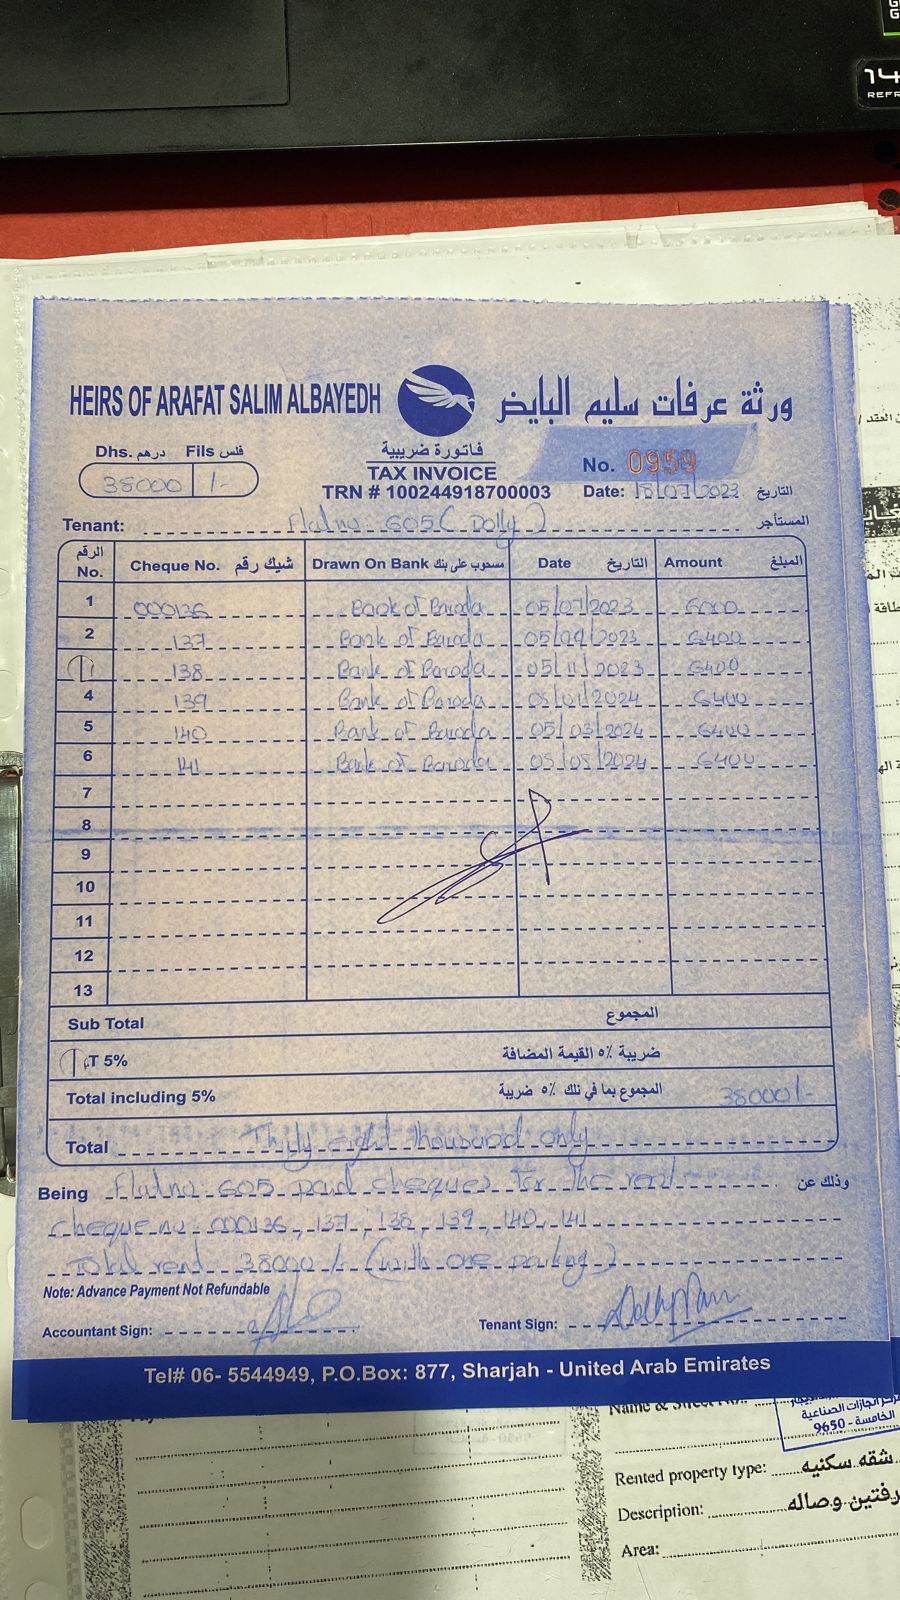 14
REFR
HEIRS OF ARAFAT SALIM ALBAYEDH
ورثة عرفات سليم البايض
Dhs. درهم Fils فلس
38000 /-
فاتورة ضريبية
TAX INVOICE
TRN # 100244918700003
No. 0959
Date: 18/07/2023 التاريخ
Tenant: Flat no 605 (Dolly) المستأجر
الرقم No. Cheque No. شيك رقم Drawn On Bank مسحوب على بنك Date التاريخ Amount المبلغ
1 000136 Bank of Baroda 05/07/2023 6000
2 137 Bank of Baroda 05/09/2023 6400
138 Bank of Baroda 05/11/2023 6400
4 139 Bank of Baroda 05/01/2024 6400
5 140 Bank of Baroda 05/03/2024 6400
6 141 Bank of Baroda 05/05/2024 6400
7
8
9
10
11
12
13
Sub Total المجموع
T 5% ضريبة ٥٪ القيمة المضافة
Total including 5% المجموع بما في تلك ٥٪ ضريبة 38000/-
Total Thirty eight thousand only
Being Flat no 605 paid cheques for the rent وذلك عن
cheque no 000136, 137, 138, 139, 140, 141
Total rent 38000/- (with one parking)
Note: Advance Payment Not Refundable
Accountant Sign: Tenant Sign:
Tel# 06- 5544949, P.O.Box: 877, Sharjah - United Arab Emirates
الصناعية
الخامسة - 9650
Rented property type: شقه سكنيه
Description: وصاله
Area: